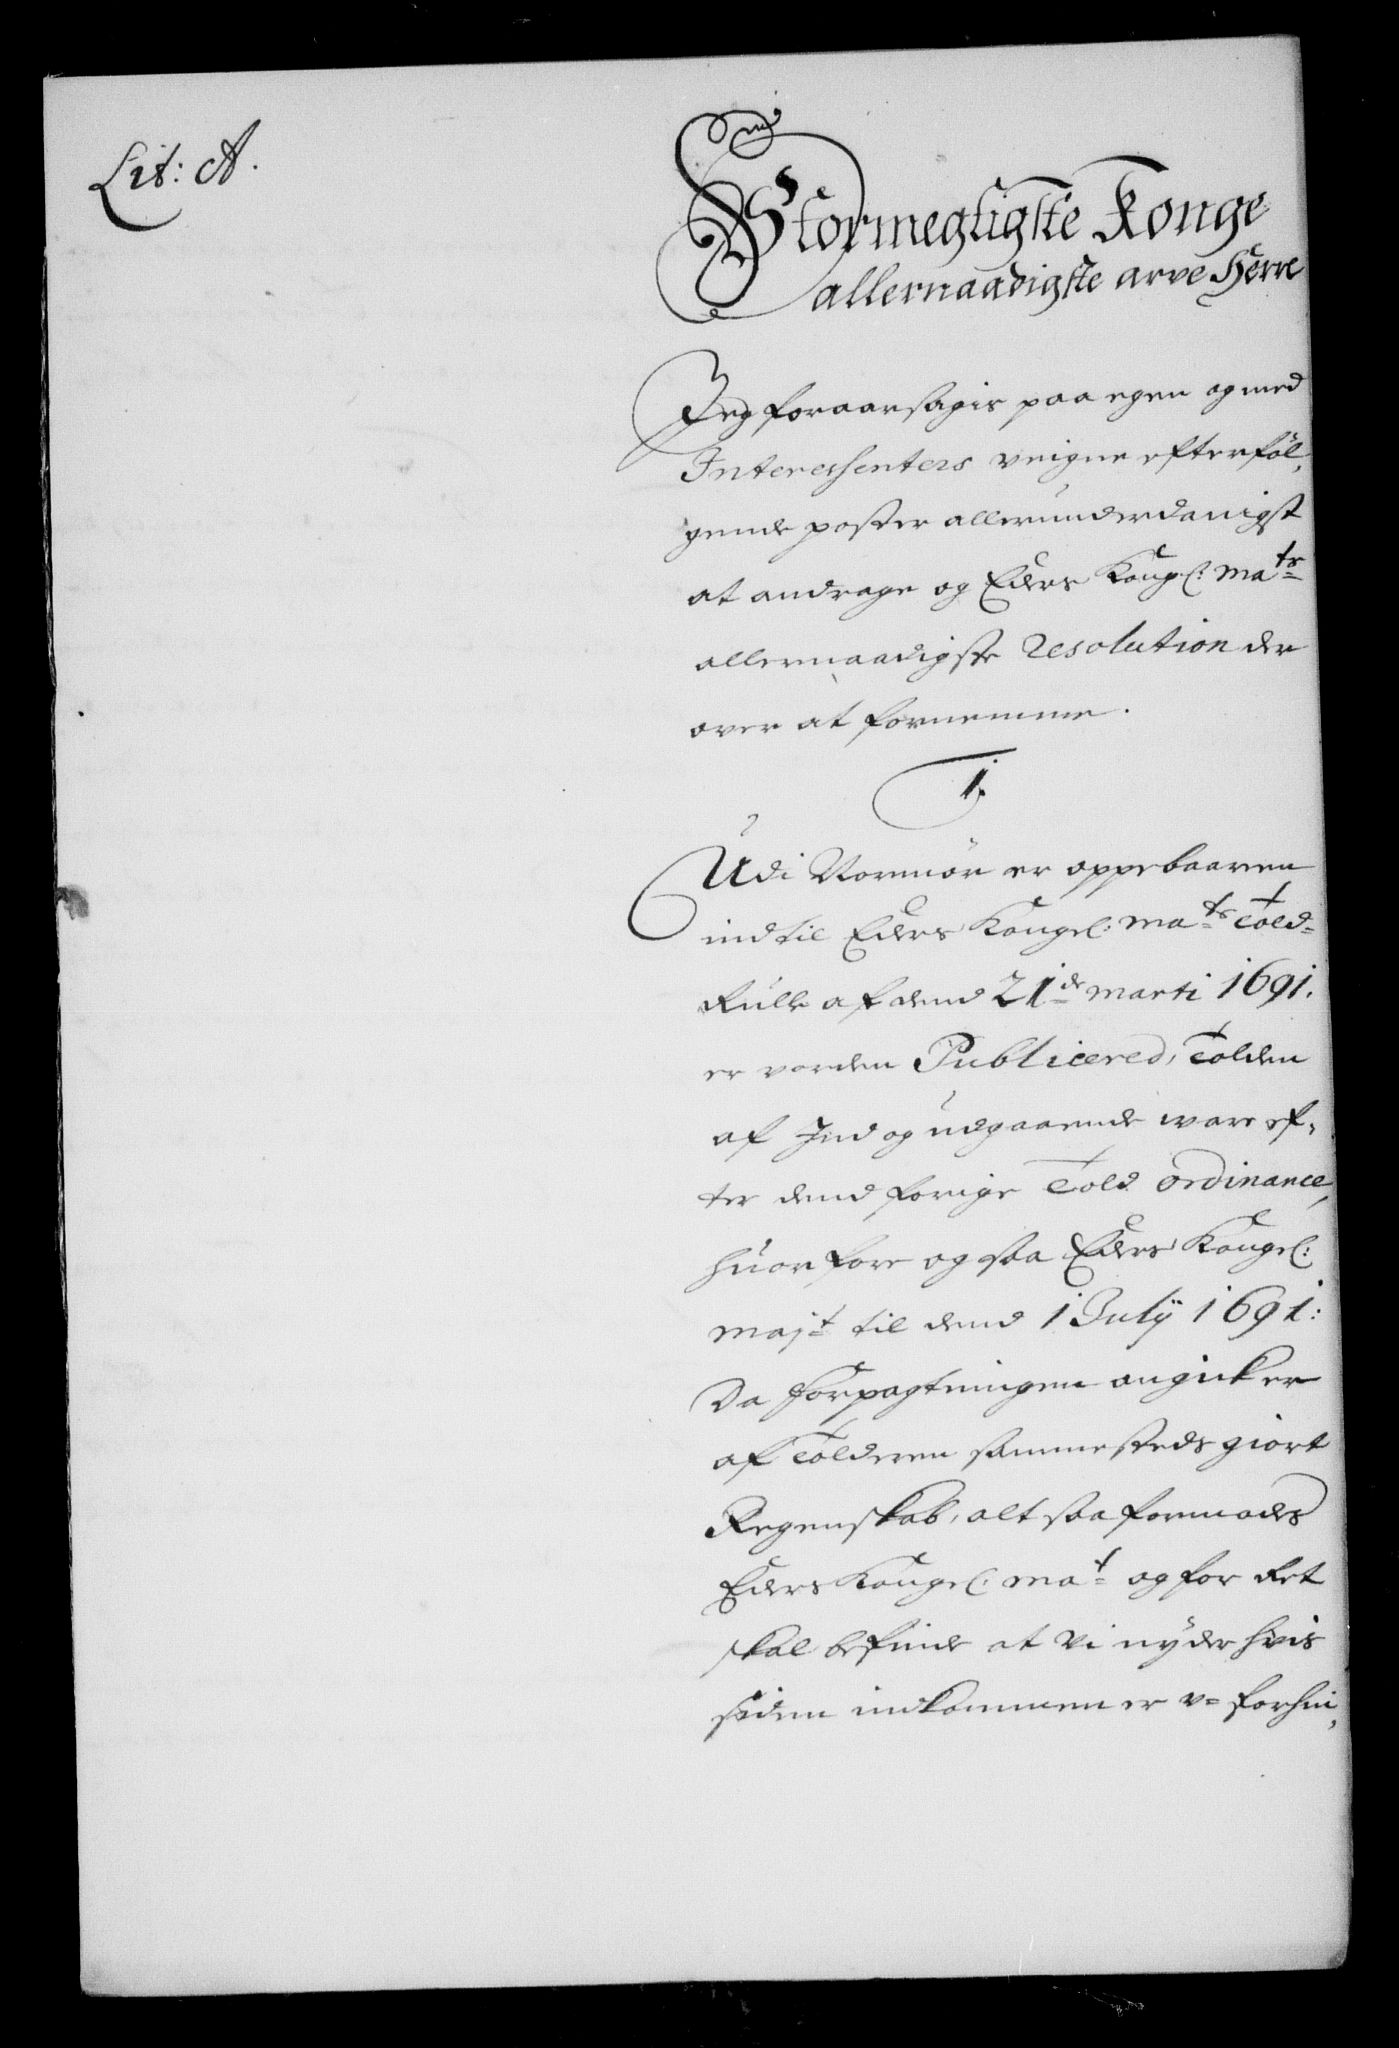 Lit: A.
Stormegtigste Konge
allernaadigste arve Herre
Jeg foraarsagis paa egen og med
Interessenters veigne efterføl,
gende poster allerunderdanigst
at andrage og Eders Kongl: Ma^ts
allernaadigste Resolution der
over at fornemme.
1.
Udi Normör er oppebaaren
indtil Eders Kongel: Ma^ts Told=
Rulle af dend 21^de marti 1691.
er vorden Publicered, Tolden
af Ind og udgaaende ware ef,
ter dend forige Told ordinance,
huorfore og saa Eders Kongel:
maj^t til dend 1 Julÿ 1691:
Da Forpagtningen angick er
af Tolderen sammesteds giort
Regenskab, alt saa formodes
Eders Kongel: Ma^t og for Ret
skal befinde at vi nyder hvis
siden indkommen er v= forhin,